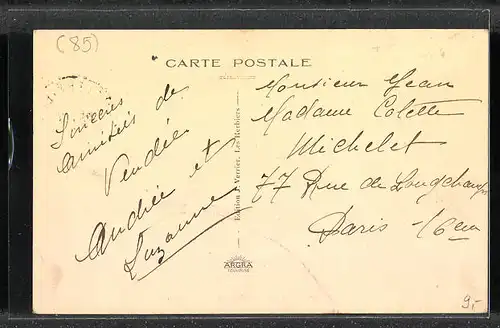 (85)
CARTE POSTALE
Sincères
Amitiés de
Vendée
Andrée et
Suzanne
Edition J. Verrier, Les Herbiers
ARGRA
Monsieur Jean
Madame Colette
Michelet
77 Rue de Longchamps
Paris 16em
9,-